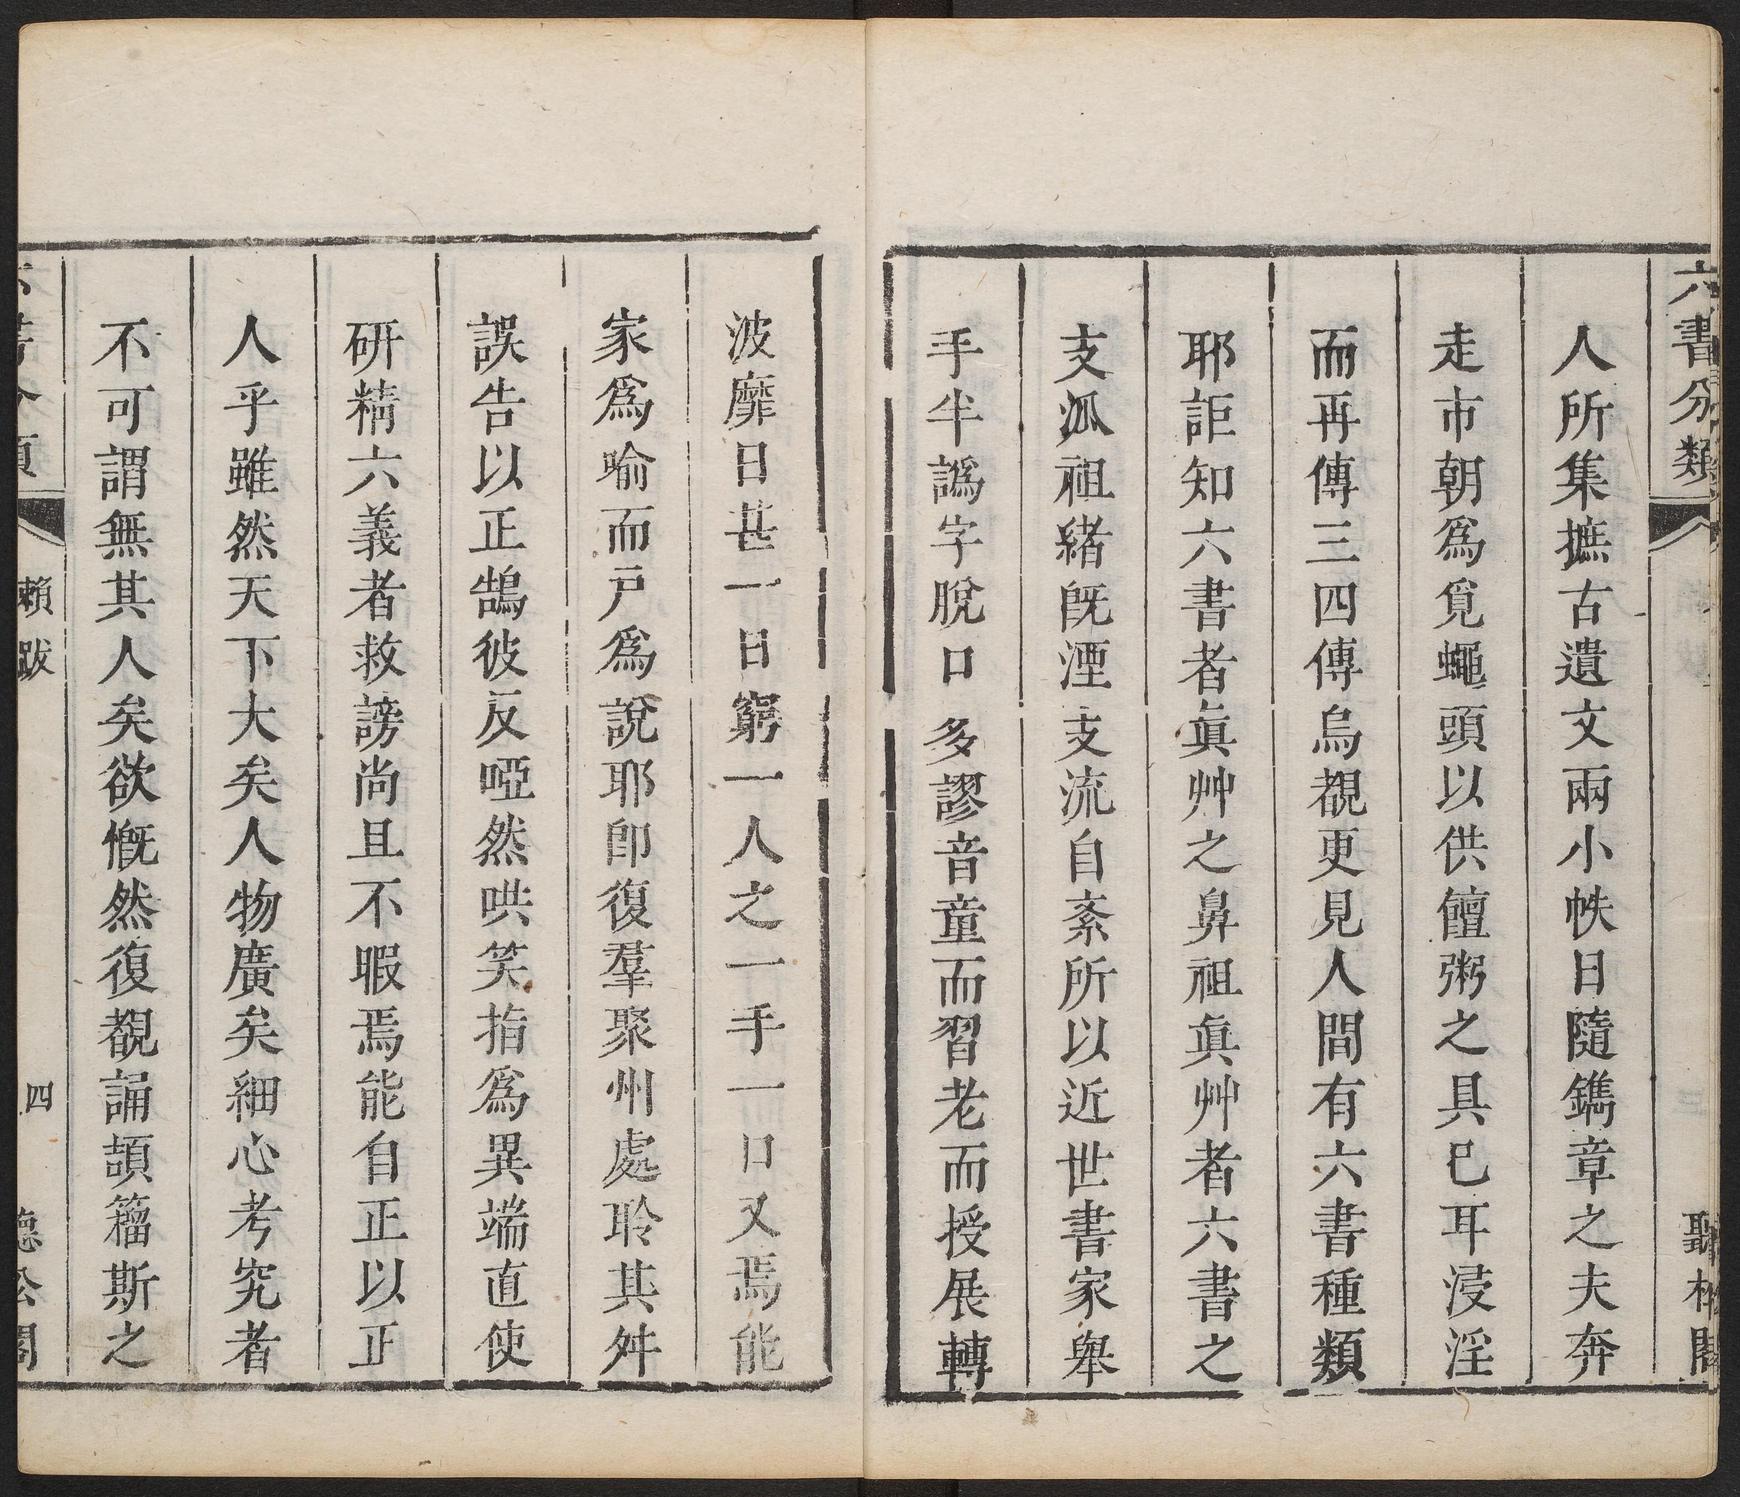 六書分類
聽松閣
人所集摭古遺文兩小帙日隨鐫章之夫奔
走市朝爲覓蠅頭以供饘粥之具巳耳浸淫
而再傳三四傳烏覩更見人間有六書種類
耶詎知六書者眞艸之鼻祖眞艸者六書之
支泒祖緒旣湮支流自紊所以近世書家舉
手半譌字脫口多謬音童而習老而授展轉
波靡日甚一日窮一人之一手一口又焉能
家爲喻而戶爲說耶卽復羣聚州處聆其舛
誤告以正鵠彼反啞然哄笑指爲異端直使
研精六義者救謗尚且不暇焉能自正以正
人乎雖然天下大矣人物廣矣細心考究者
不可謂無其人矣欲慨然復覩誦頡籀斯之
六書分類
賴跋
四
聽松閣